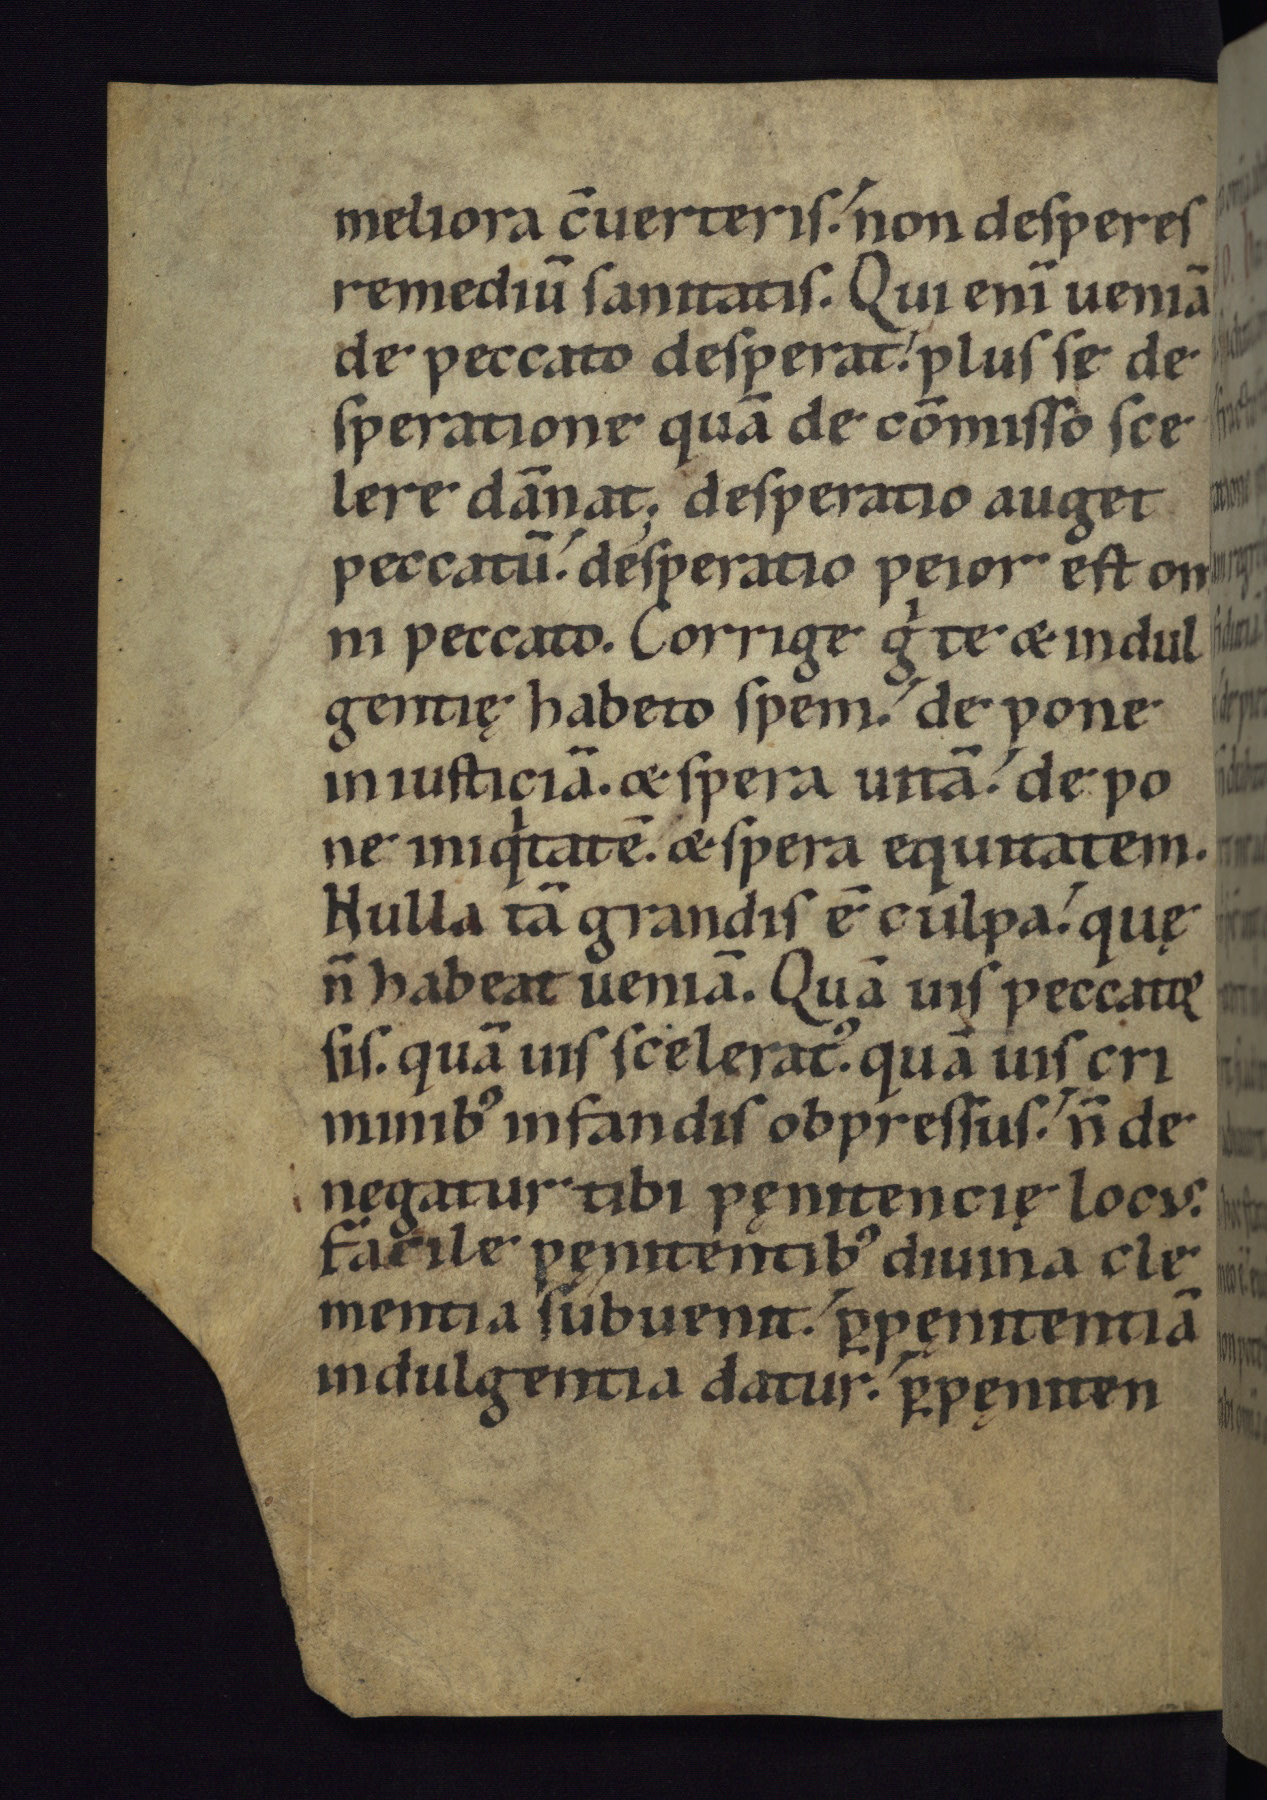 meliora c̄uerteris. non desperes
remediū sanitatis. Qui enī ueniā
de peccato desperat. plus se de
speratione quā de cōmisso sce
lere dānat; desperatio auget
peccatū. desperatio peior est om
ni peccato. Corrige gͥ te & indul
gentię habeto spem. de pone
iniusticiā. & spera uitā. de po
ne iniqͥtatē. & spera equitatem.
Nulla tā grandis ē culpa. quę
n̄ habeat ueniā. Quā uis peccatꝭ
sis. quā uis scelerat᾿. quā uis cri
minib᾿ infandis obpressus. n̄ de
negatur tibi pęnitencię locus.
facile pęnitentib᾿ diuina cle
mentia subuenit. ꝑ pęnitentiā
indulgentia datur. ꝑ pęniten